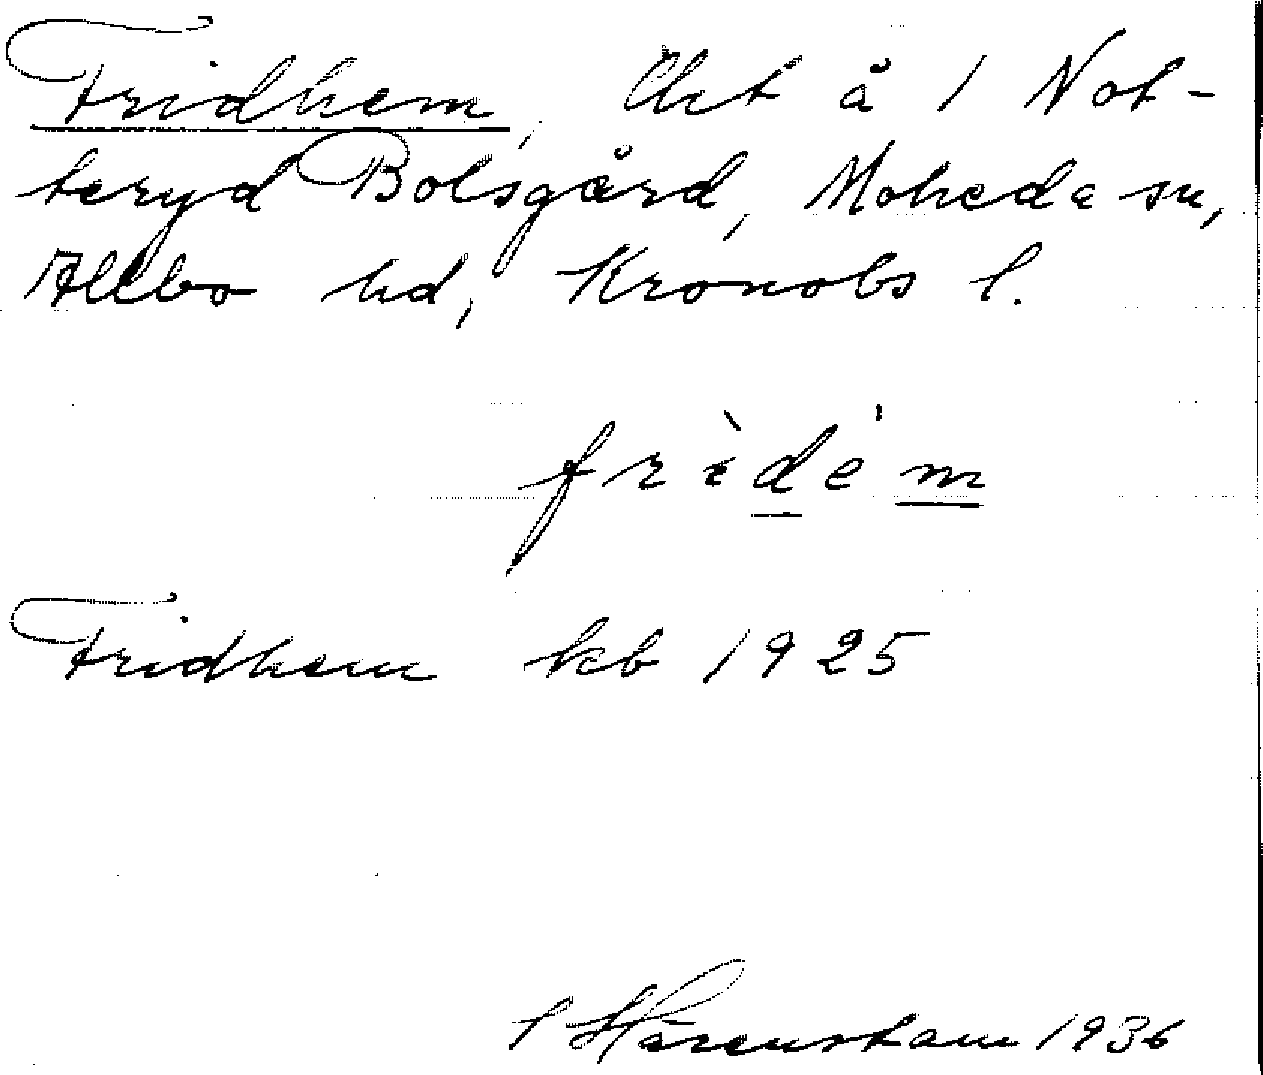 Fridhem, lht å 1 Not-
teryd Bolsgård, Moheda sn,
Allbo hd, Kronobs l.
frìdém
Fridhem kb 1925
Härenstam 1936